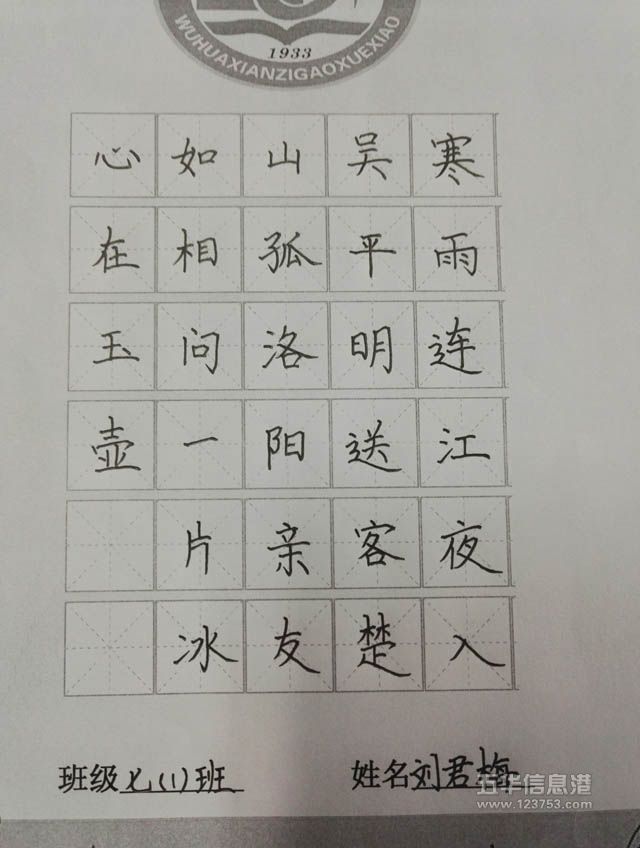 1933
WUHUAXIANZIGAOXUEXIAO
寒雨连江夜入
吴平明送客楚
山孤洛阳亲友
如相问一片冰
心在玉壶
班级七(1)班 姓名刘君梅
五华信息港
www.123753.com